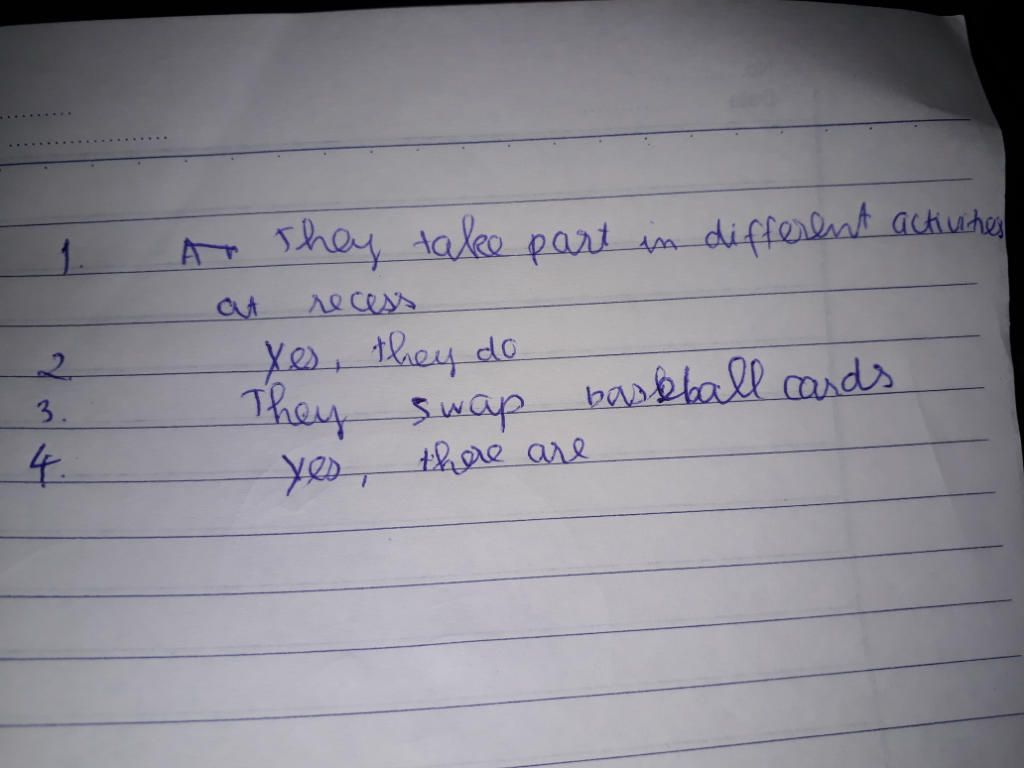 1. At They take part in different activities
at recess
2 Yes, they do
3. They swap baskball cards
4. yes, there are